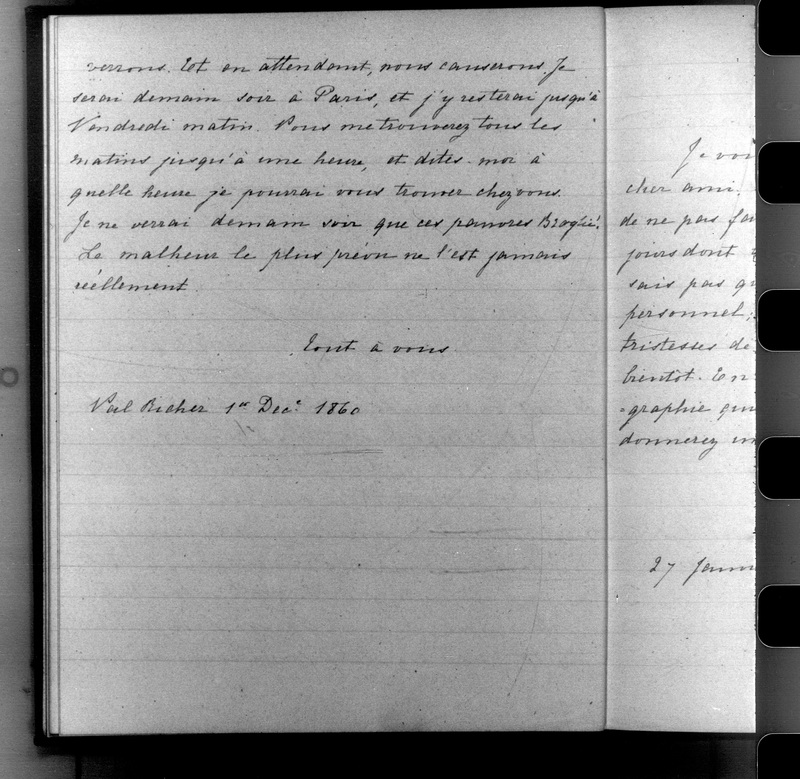 verrons. Et en attendant, nous causerons. Je
serai demain soir à Paris, et j'y resterai jusqu'à
Vendredi matin. Vous me trouverez tous les
matins jusqu'à une heure, et dites-moi à
quelle heure je pourrai vous trouver chez vous.
Je ne verrai demain soir que ces pauvres Broglie.
Le malheur le plus prévu ne l'est jamais
réellement.
Tout à vous.
Val Richer 1er Dece 1860
Je vou
cher ami.
de ne pas fai
jours dont
sais pas qu
personnel;
tristesses de
bientôt. En
=graphie qu
donnerez un
27 Janv